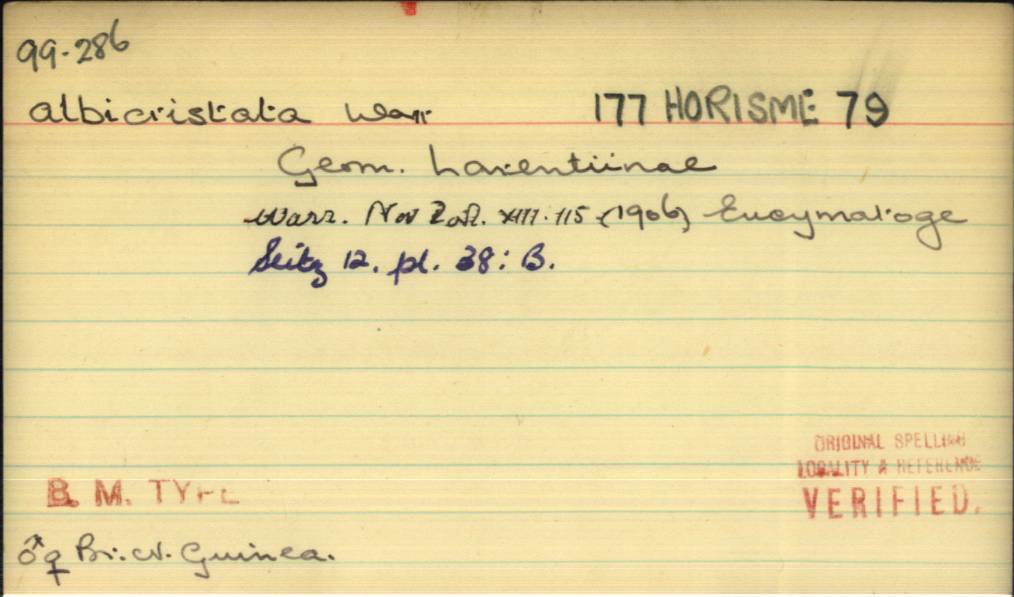 99.286
albicristata Warr 177 HORISME 79
Geom. Larentiinae
Warr. Nov Zool. XIII. 115 (1906) Eucymatoge
Seitz 12. pl. 38: B.
ORIGINAL SPELLING
LOCALITY & REFERENCE
B. M. TYPE
VERIFIED.
♂♀ Br. N. Guinea.